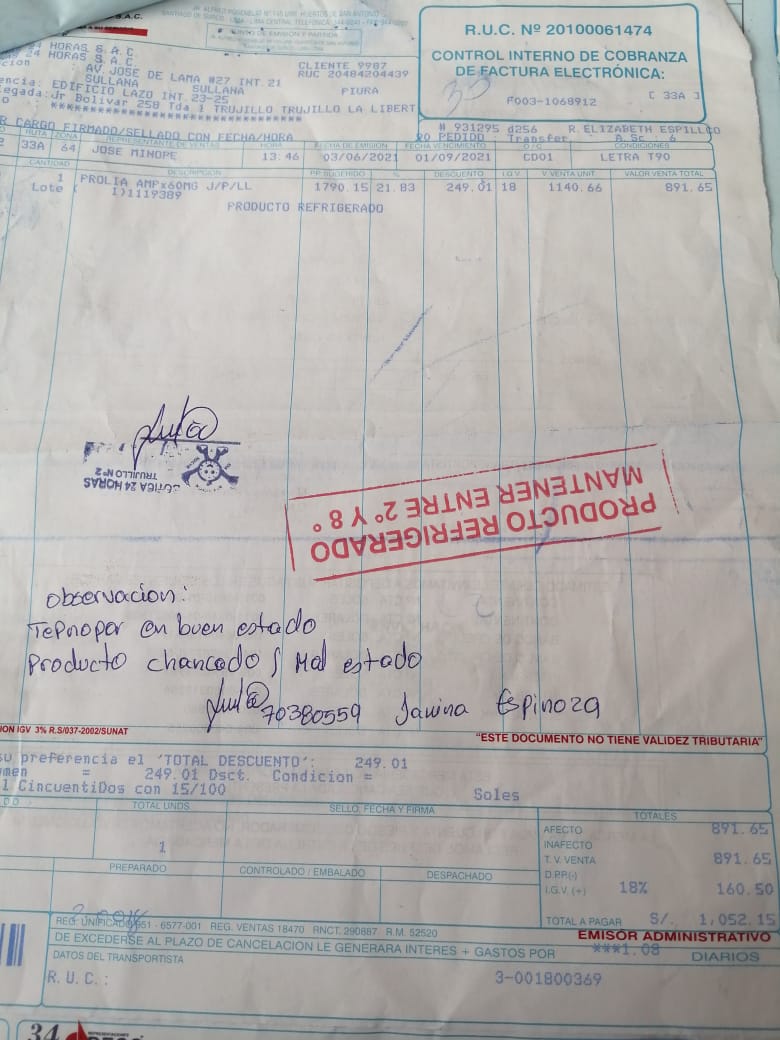 S.A.C.
SANTIAGO DE SURCO - LIMA - LIMA CENTRAL TELEFONICA:
PUNTO DE EMISION Y PARTIDA
R.U.C. Nº 20100061474
CONTROL INTERNO DE COBRANZA
DE FACTURA ELECTRÓNICA:
F003-1068912 [ 33A ]
24 HORAS S.A.C.
24 HORAS S.A.C.
AV. JOSE DE LAMA #27 INT.21
SULLANA
EDIFICIO LAZO INT.23-25 SULLANA PIURA
Jr Bolivar 258 Tda 1 TRUJILLO TRUJILLO LA LIBERT
CLIENTE 9987
RUC 20484204439
# 931295 d256 R.ELIZABETH ESPILLCO
CARGO FIRMADO/SELLADO CON FECHA/HORA
PEDIDO : Transfer A.Sc: 6
RUTA ZONA REPRESENTANTE DE VENTAS HORA FECHA DE EMISION FECHA VENCIMIENTO O/C CONDICIONES
33A 64 JOSE MINOPE 13:46 03/06/2021 01/09/2021 CD01 LETRA T90
CANTIDAD DESCRIPCION PP. SUGERIDO % DESCUENTO I.G.V. V.VENTA UNIT. VALOR VENTA TOTAL
1 PROLIA AMPx60MG J/P/LL 1790.15 21.83 249.01 18 1140.66 891.65
Lote ( 1)1119389
PRODUCTO REFRIGERADO
BOTICA 24 HORAS
TRUJILLO Nº 2
PRODUCTO REFRIGERADO
MANTENER ENTRE 2° Y 8°
Observacion:
Tepnopor en buen estado
Producto chancado / Mal estado
70380559 Janina Espinoza
IGV 3% R.S/037-2002/SUNAT
"ESTE DOCUMENTO NO TIENE VALIDEZ TRIBUTARIA"
su preferencia el 'TOTAL DESCUENTO': 249.01
= 249.01 Dsct. Condicion =
CincuentiDos con 15/100 Soles
TOTAL UNDS. SELLO, FECHA Y FIRMA TOTALES
1
AFECTO 891.65
INAFECTO
T.V. VENTA 891.65
D.P.P.(-)
I.G.V. (+) 18% 160.50
TOTAL A PAGAR S/. 1,052.15
PREPARADO CONTROLADO / EMBALADO DESPACHADO
EMISOR ADMINISTRATIVO
REG. UNIFICADO 951 - 6577-001 REG. VENTAS 18470 RNCT. 290887 R.M. 52520
DE EXCEDERSE AL PLAZO DE CANCELACION LE GENERARA INTERES + GASTOS POR ***1.08 DIARIOS
DATOS DEL TRANSPORTISTA
R.U.C.: 3-001800369
34
REPRESENTACIONES